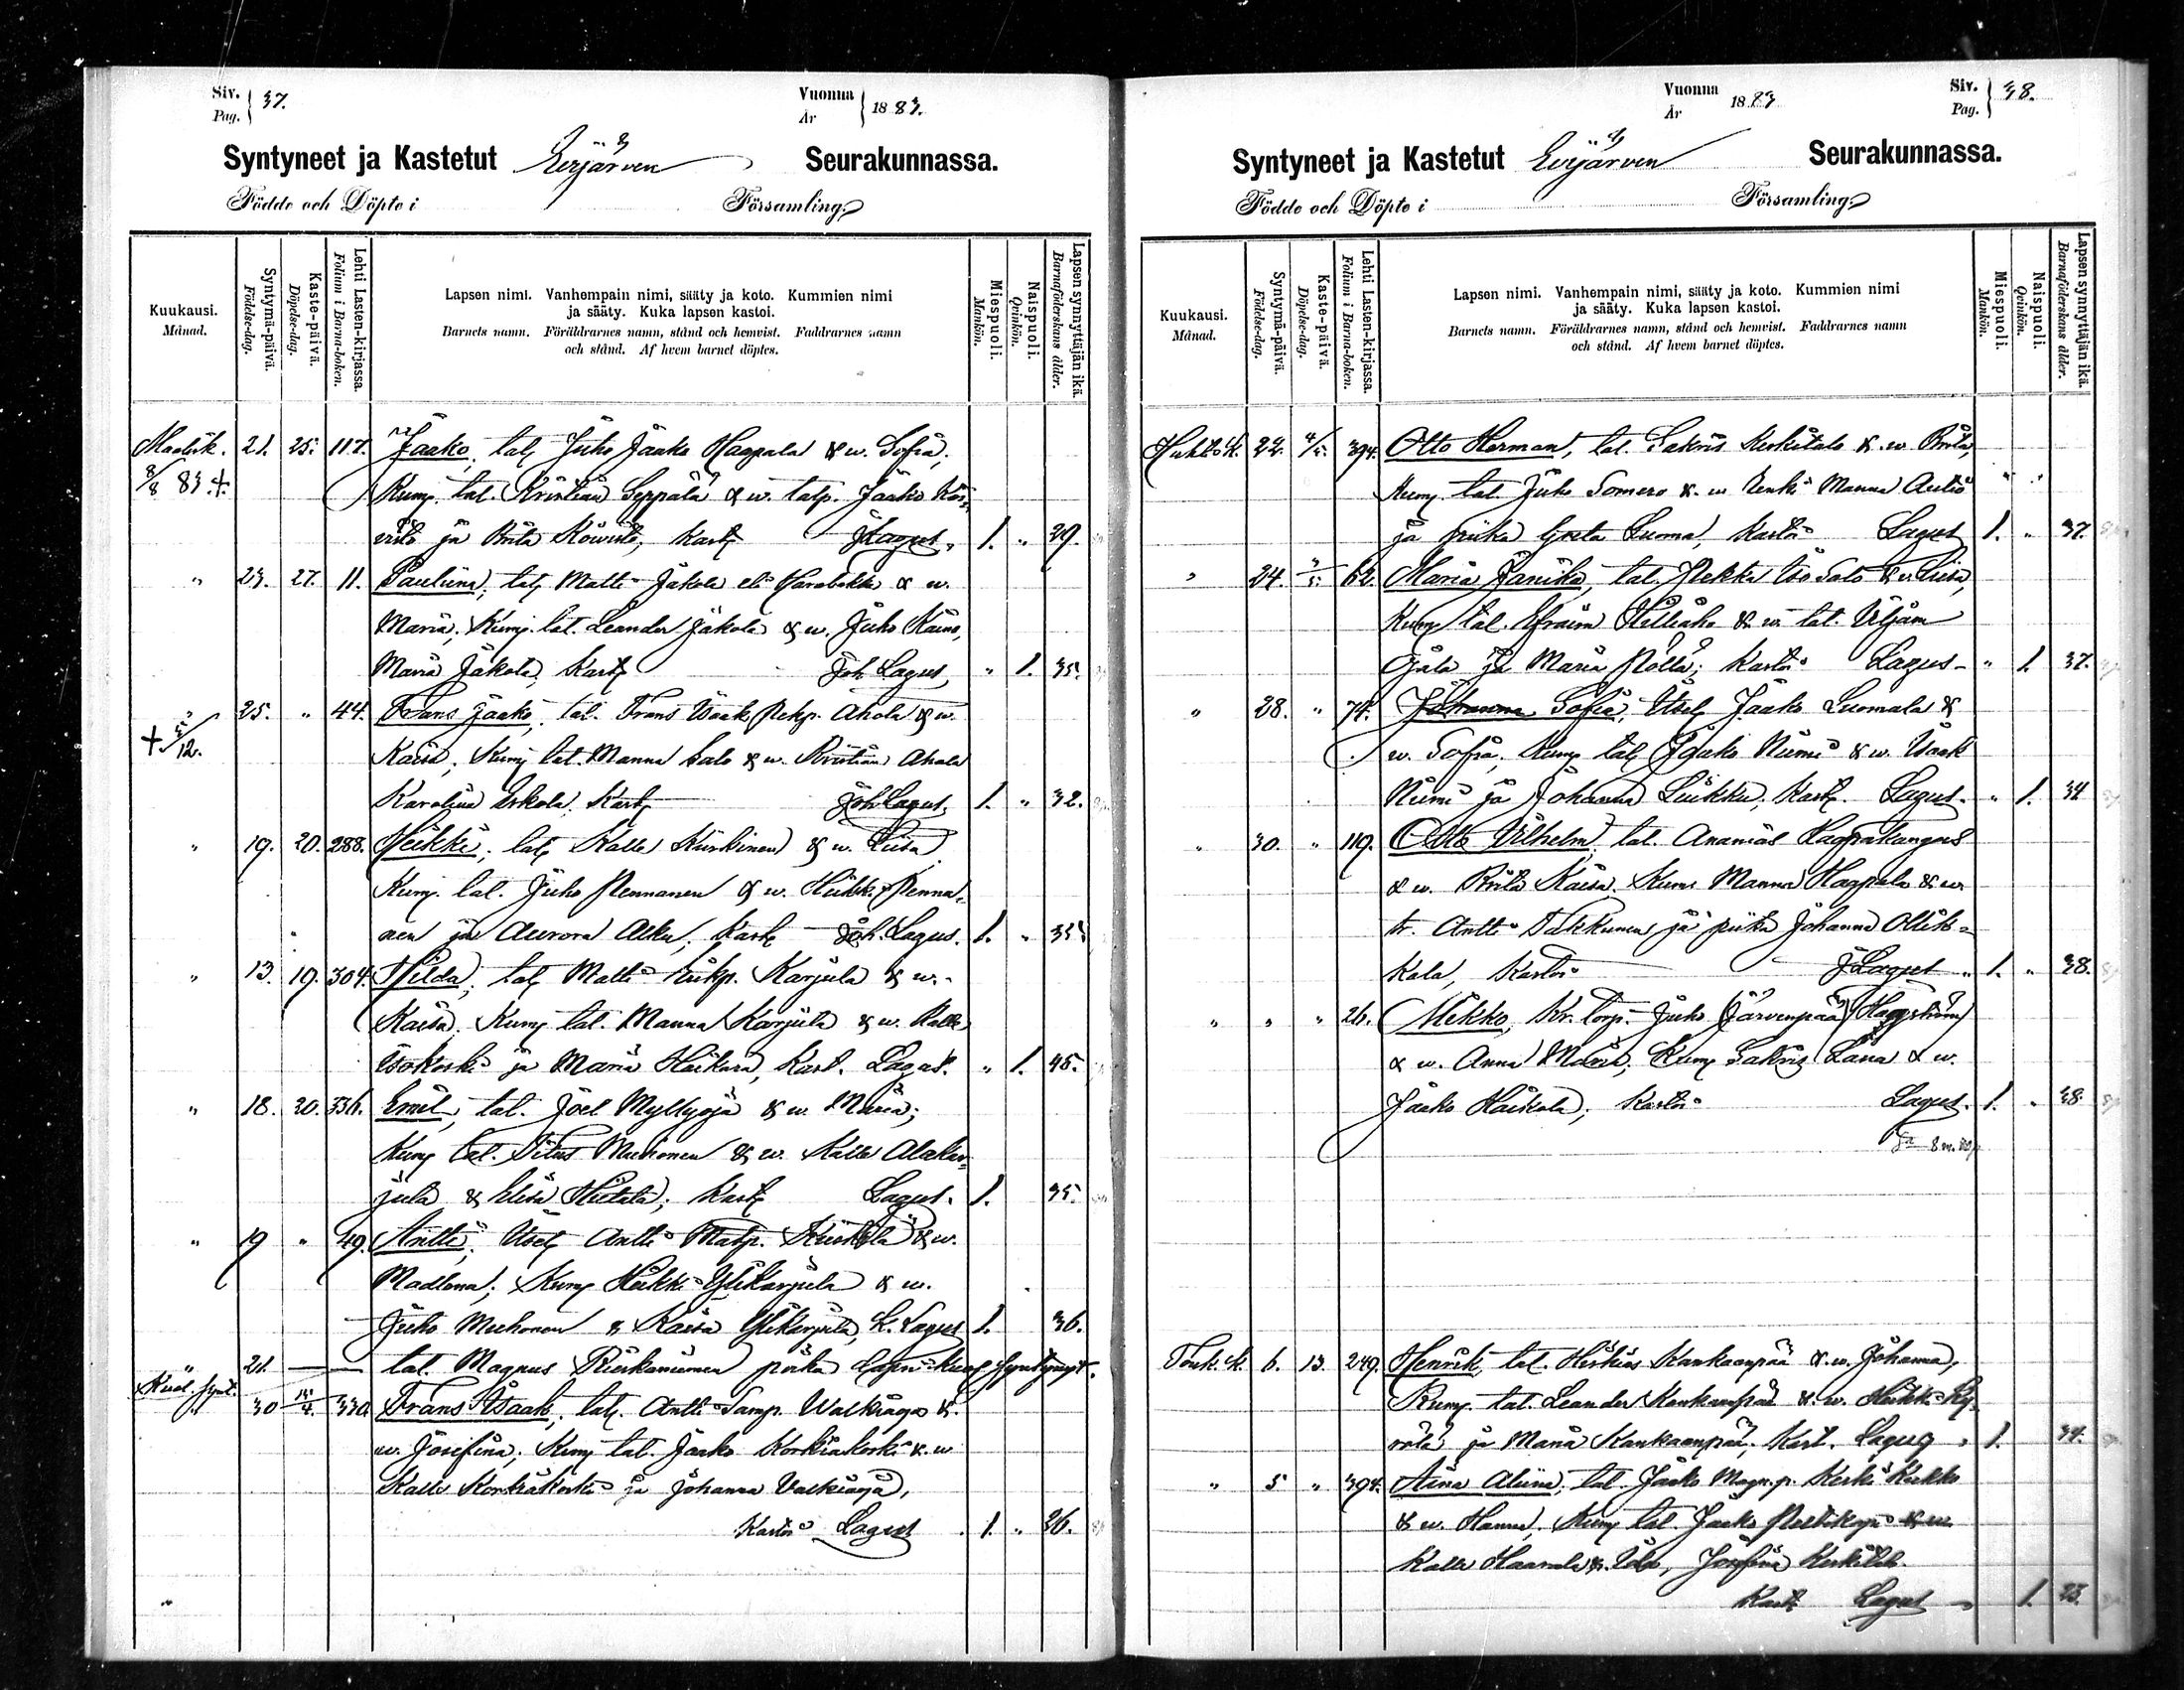 Siv. Pag. 37.
Vuonna År 1883.
Syntyneet ja Kastetut Evijärven Seurakunnassa.
Födde och Döpte i Församling.
Kuukausi. Månad.
Syntymä-päivä. Födelse-dag.
Kaste-päivä. Döpelse-dag.
Lehti Lasten-kirjassa. Folium i Barna-boken.
Lapsen nimi. Vanhempain nimi, sääty ja koto. Kummien nimi
ja sääty. Kuka lapsen kastoi.
Barnets namn. Föräldrarnes namn, stånd och hemvist. Faddrarnes namn
och stånd. Af hvem barnet döptes.
Miespuoli. Mankön.
Naispuoli. Qvinkön.
Lapsen synnyttäjän ikä. Barnaföderskans ålder.
Maalisk. 21. 25. 117. Jaako, tal. Juho Jaako Haapala & w. Sofia,
8/8 83. + Kum. tal. Kristian Seppälä & w. talp. Jaako Koi-
visto ja Brita Koivisto, Kast. J Lagus. 1. " 29.
" 23. 27. 11. Pauliina, tal. Matti Jäkola eli & w.
Maria, Kum. tal. Leander Jäkola & w. Juho
Maria Jäkola, Kast. Joh. Lagus, " 1. 35.
" 25. " 44. Frans Jaako, tal. Frans Isaak Ahola & w.
+ 5/12. Kaisa, Kum. tal. Manna Salo & w. Kristian Ahola
Karolina Eskola, Kast. Joh Lagus, 1. " 32.
" 19. 20. 288. Heikki, tal. Kalle & w. Liisa
Kum. tal. Juho Pennanen & w. Heikki Penna-
nen ja Aurora Kast. Joh. Lagus. 1. " 35.
" 13. 19. 304. Hilda, tal. Matti Karjula & w.
Kaisa, Kum. tal. Manna Karjula & w. Kalle
Isokoski ja Maria Kast. Lagus. " 1. 45.
" 18. 20. 336. Emil, tal. Joel Myllyoja & w. Maria;
Kum. tal. Titus Muhonen & w. Kalle Alakar-
jula & Elisa Hietala; Kast. Lagus. 1. 35.
" 19 " 49. Antti, Itsel. Antti & w.
Madlena; Kum. Heikki Ylikarjula & w.
Juho Muhonen & Kaisa Ylikarjula, K. Lagus 1. 36.
" 21. — — tal. Magnus
Kuol. synt.
" 30 15/4. 330. Frans Isaak, tal. Antti Samp. Walkiaoja &
w. Josefina; Kum. tal. Jaako Korkiakoski & w
Kalle Korkiakoski ja Johanna Valkiaoja,
Kastoi Lagus 1. " 26.
Vuonna År 1883
Siv. Pag. 38.
Syntyneet ja Kastetut Evijärven Seurakunnassa.
Födde och Döpte i Församling.
Kuukausi. Månad.
Syntymä-päivä. Födelse-dag.
Kaste-päivä. Döpelse-dag.
Lehti Lasten-kirjassa. Folium i Barna-boken.
Lapsen nimi. Vanhempain nimi, sääty ja koto. Kummien nimi
ja sääty. Kuka lapsen kastoi.
Barnets namn. Föräldrarnes namn, stånd och hemvist. Faddrarnes namn
och stånd. Af hvem barnet döptes.
Miespuoli. Mankön.
Naispuoli. Qvinkön.
Lapsen synnyttäjän ikä. Barnaföderskans ålder.
Huhtik. 22. 4/5. 394. Otto Herman, tal. Sakris Keskitalo & w. Brita,
Kum. tal. Juho Somero & w Renki Manna Autio
ja piika Luoma, Kastoi Lagus 1. " 37.
" 24. 62. Maria tal. Pekka Iso Salo & w. Liisa,
Kum. tal. Efraim & w tal. Viljam
ja Maria Kastoi Lagus " 1. 37.
" 28. " 74. Johanna Sofia, Itsel. Jaako Luomala &
w. Sofia, Kum. tal. Jaako Niemi & w. Isaak
Niemi ja Johanna Kast. Lagus. " 1. 34
" 30. " 119. Otto Vilhelm, tal. Ananias Haapakangas
& w. Brita Kaisa. Kum. Manna Haapala & w
tr. Antti ja piika Johanna Ollik-
kala, Kastoi J Lagus " 1. " 38.
" " " 26. Mikko, Kr. torp. Juho Järvenpää (Haggström)
& w. Anna Maria, Kum. Sakris & w.
Jaako Kastoi Lagus. 1. " 38
Touk. k. 6. 13. 249. Henrik, tal. Hiskias Kankaanpää & w. Johanna,
Kum. tal. Leander Kankaanpää & w. Heikki Ky-
rölä ja Maria Kankaanpää, Kast. Lagus " 1. 34.
" 5 " 394. Aina Aliina, tal. Jaako Magn.p. Keski
& w. Hanna, Kum. tal. Jaako & w
Kalle Josefina Keskitalo
Kast. Lagus " 1. 23.